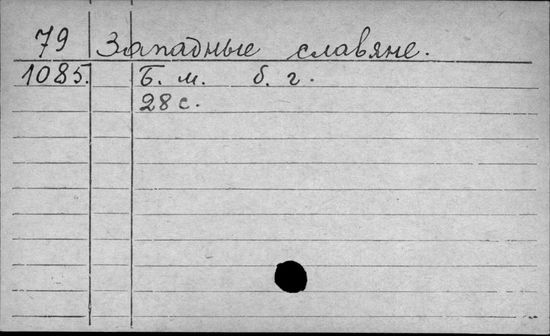 79 Западные славяне.
1085. Б. м. б. г.
28 с.